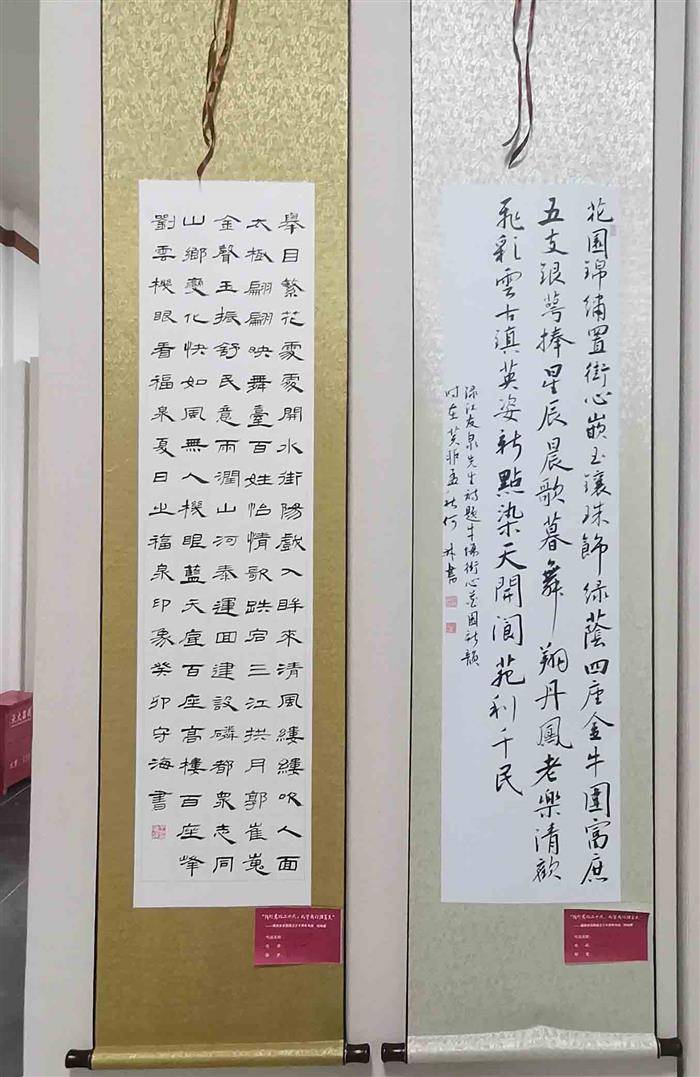 花園錦繡置街心嵌玉鑲珠飾绿蔭四座金牛圍富庶
五支銀萼捧星辰晨歌暮舞翔丹鳳老樂清歡
飛彩雲古滇英姿新點染天開閬苑利千民
江友泉先生詩題街心花園新韻
时在癸卯孟秋何林書
舉目繁花處處開水街陽戲入眸來清風縷縷吹人面
太極翩翩映舞臺百姓怡情歌跌宕三江拱月郭崔嵬
金聲玉振舒民意雨潤山河泰運回建設磷都衆志同
山鄉變化快如風無人機眼藍天宜百座高樓百座峰
劉雲機眼看福泉夏日之福泉印象癸卯守海書